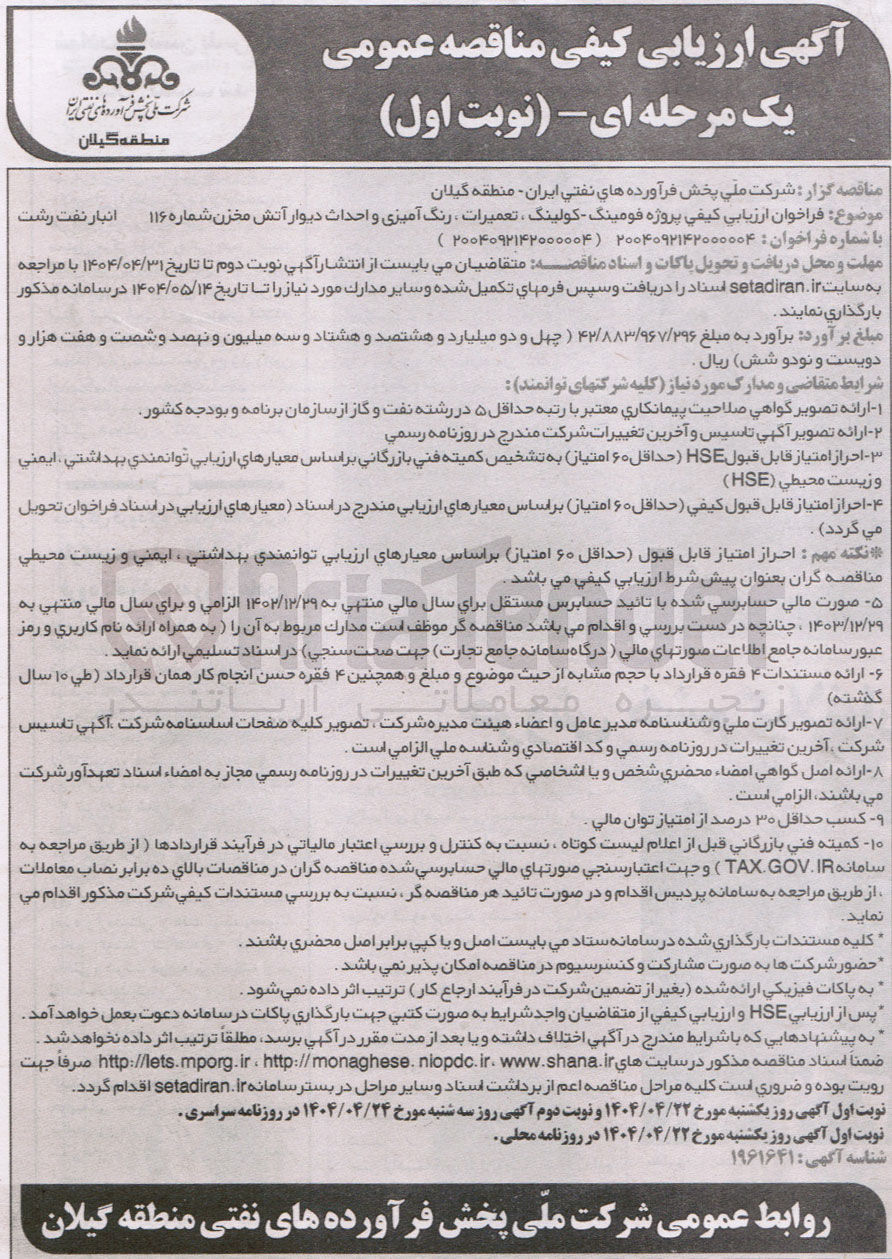 آگهی ارزیابی کیفی مناقصه عمومی
یک مرحله ای– (نوبت اول)
شرکت ملی پخش فرآورده های نفتی ایران
منطقه گیلان
مناقصه گزار : شرکت ملّي پخش فرآورده هاي نفتي ايران - منطقه گيلان
موضوع: فراخوان ارزيابي كيفي پروژه فومینگ -کولینگ ، تعمیرات ، رنگ آمیزی و احداث دیوار آتش مخزن شماره ۱۱۶ انبار نفت رشت
با شماره فراخوان : ۲۰۰۴۰۹۲۱۴۲۰۰۰۰۰۴ ( ۲۰۰۴۰۹۲۱۴۲۰۰۰۰۰۴ )
مهلت و محل دریافت و تحویل پاکات و اسناد مناقصـــه: متقاضيان مي بايست از انتشار آگهي نوبت دوم تا تاريخ ۱۴۰۴/۰۴/۳۱ با مراجعه
به سايت setadiran.ir اسناد را دريافت و سپس فرمهاي تكميل شده و ساير مدارك مورد نياز را تــا تاريخ ۱۴۰۴/۰۵/۱۴ در سامانه مذكور
بارگذاري نمايند .
مبلغ برآورد: برآورد به مبلغ ۴۲/۸۸۳/۹۶۷/۲۹۶ ( چهل و دو میلیارد و هشتصد و هشتاد و سه میلیون و نهصد و شصت و هفت هزار و
دویست و نودو شش) ریال .
شرایط متقاضی و مدارک مورد نیاز (کلیه شرکتهای توانمند) :
۱-ارائه تصوير گواهي صلاحيت پيمانكاري معتبر با رتبه حداقل ۵ در رشته نفت و گاز از سازمان برنامه و بودجه كشور .
۲-ارائه تصوير آگهي تاسيس و آخرين تغييرات شركت مندرج در روزنامه رسمي
۳-احراز امتياز قابل قبول HSE (حداقل ۶۰ امتياز) به تشخيص كميته فني بازرگاني براساس معيارهاي ارزيابي توانمندي بهداشتي ، ايمني
و زيست محيطي (HSE)
۴-احراز امتياز قابل قبول كيفي (حداقل ۶۰ امتياز) براساس معيارهاي ارزيابي مندرج در اسناد (معيارهاي ارزيابي در اسناد فراخوان تحويل
مي گردد) .
*نکته مهم : احراز امتياز قابل قبول (حداقل ۶۰ امتياز) براساس معيارهاي ارزيابي توانمندي بهداشتي ، ايمني و زيست محيطي
مناقصه گران بعنوان پيش شرط ارزيابي كيفي مي باشد .
۵- صورت مالي حسابرسي شده با تائيد حسابرس مستقل براي سال مالي منتهي به ۱۴۰۲/۱۲/۲۹ الزامي و براي سال مالي منتهي به
۱۴۰۳/۱۲/۲۹ ، چنانچه در دست بررسي و اقدام مي باشد مناقصه گر موظف است مدارك مربوط به آن را ( به همراه ارائه نام كاربري و رمز
عبور سامانه جامع اطلاعات صورتهاي مالي ( درگاه سامانه جامع تجارت) جهت صحت سنجي) در اسناد تسليمي ارائه نمايد .
۶- ارائه مستندات ۴ فقره قرارداد با حجم مشابه از حيث موضوع و مبلغ و همچنين ۴ فقره حسن انجام كار همان قرارداد (طي ۱۰ سال
گذشته)
۷-ارائه تصوير كارت ملي و شناسنامه مدير عامل و اعضاء هيئت مديره شركت ، تصوير كليه صفحات اساسنامه شركت ،آگهي تاسيس
شركت ، آخرين تغييرات در روزنامه رسمي و كد اقتصادي و شناسه ملي الزامي است .
۸-ارائه اصل گواهي امضاء محضري شخص و يا اشخاصي كه طبق آخرين تغييرات در روزنامه رسمي مجاز به امضاء اسناد تعهدآور شركت
مي باشند، الزامي است .
۹- كسب حداقل ۳۰ درصد از امتياز توان مالي .
۱۰- كميته فني بازرگاني قبل از اعلام ليست كوتاه ، نسبت به كنترل و بررسي اعتبار مالياتي در فرآيند قراردادها ( از طريق مراجعه به
سامانه TAX.GOV.IR ) و جهت اعتبارسنجي صورتهاي مالي حسابرسي شده مناقصه گران در مناقصات بالاي ده برابر نصاب معاملات
، از طريق مراجعه به سامانه پرديس اقدام و در صورت تائيد هر مناقصه گر ، نسبت به بررسي مستندات كيفي شركت مذكور اقدام مي
نمايد .
* كليه مستندات بارگذاري شده در سامانه ستاد مي بايست اصل و يا كپي برابر اصل محضري باشند .
*حضور شركت ها به صورت مشاركت و كنسرسيوم در مناقصه امكان پذير نمي باشد .
* به پاكات فيزيكي ارائه شده (بغير از تضمين شركت در فرآيند ارجاع كار) ترتيب اثر داده نمي شود .
*پس از ارزيابي HSE و ارزيابي كيفي از متقاضيان واجد شرايط به صورت كتبي جهت بارگذاري پاكات در سامانه دعوت بعمل خواهد آمد .
* به پيشنهادهايي كه با شرايط مندرج در آگهي اختلاف داشته و يا بعد از مدت مقرر در آگهي برسد، مطلقاً ترتيب اثر داده نخواهد شد .
ضمناً اسناد مناقصه مذكور در سايت هاي http://lets.mporg.ir ، http://monaghese.niopdc.ir، www.shana.ir صرفاً جهت
رويت بوده و ضروري است كليه مراحل مناقصه اعم از برداشت اسناد و ساير مراحل در بستر سامانه setadiran.ir اقدام گردد.
نوبت اول آگهی روز یکشنبه مورخ ۱۴۰۴/۰۴/۲۲ و نوبت دوم آگهی روز سه شنبه مورخ ۱۴۰۴/۰۴/۲۴ در روزنامه سراسری .
نوبت اول آگهی روز یکشنبه مورخ ۱۴۰۴/۰۴/۲۲ در روزنامه محلی .
شناسه آگهی : ۱۹۶۱۶۴۱
روابط عمومی شرکت ملّی پخش فرآورده های نفتی منطقه گیلان
AriaTender
زنجیره معاملاتی آریاتندر